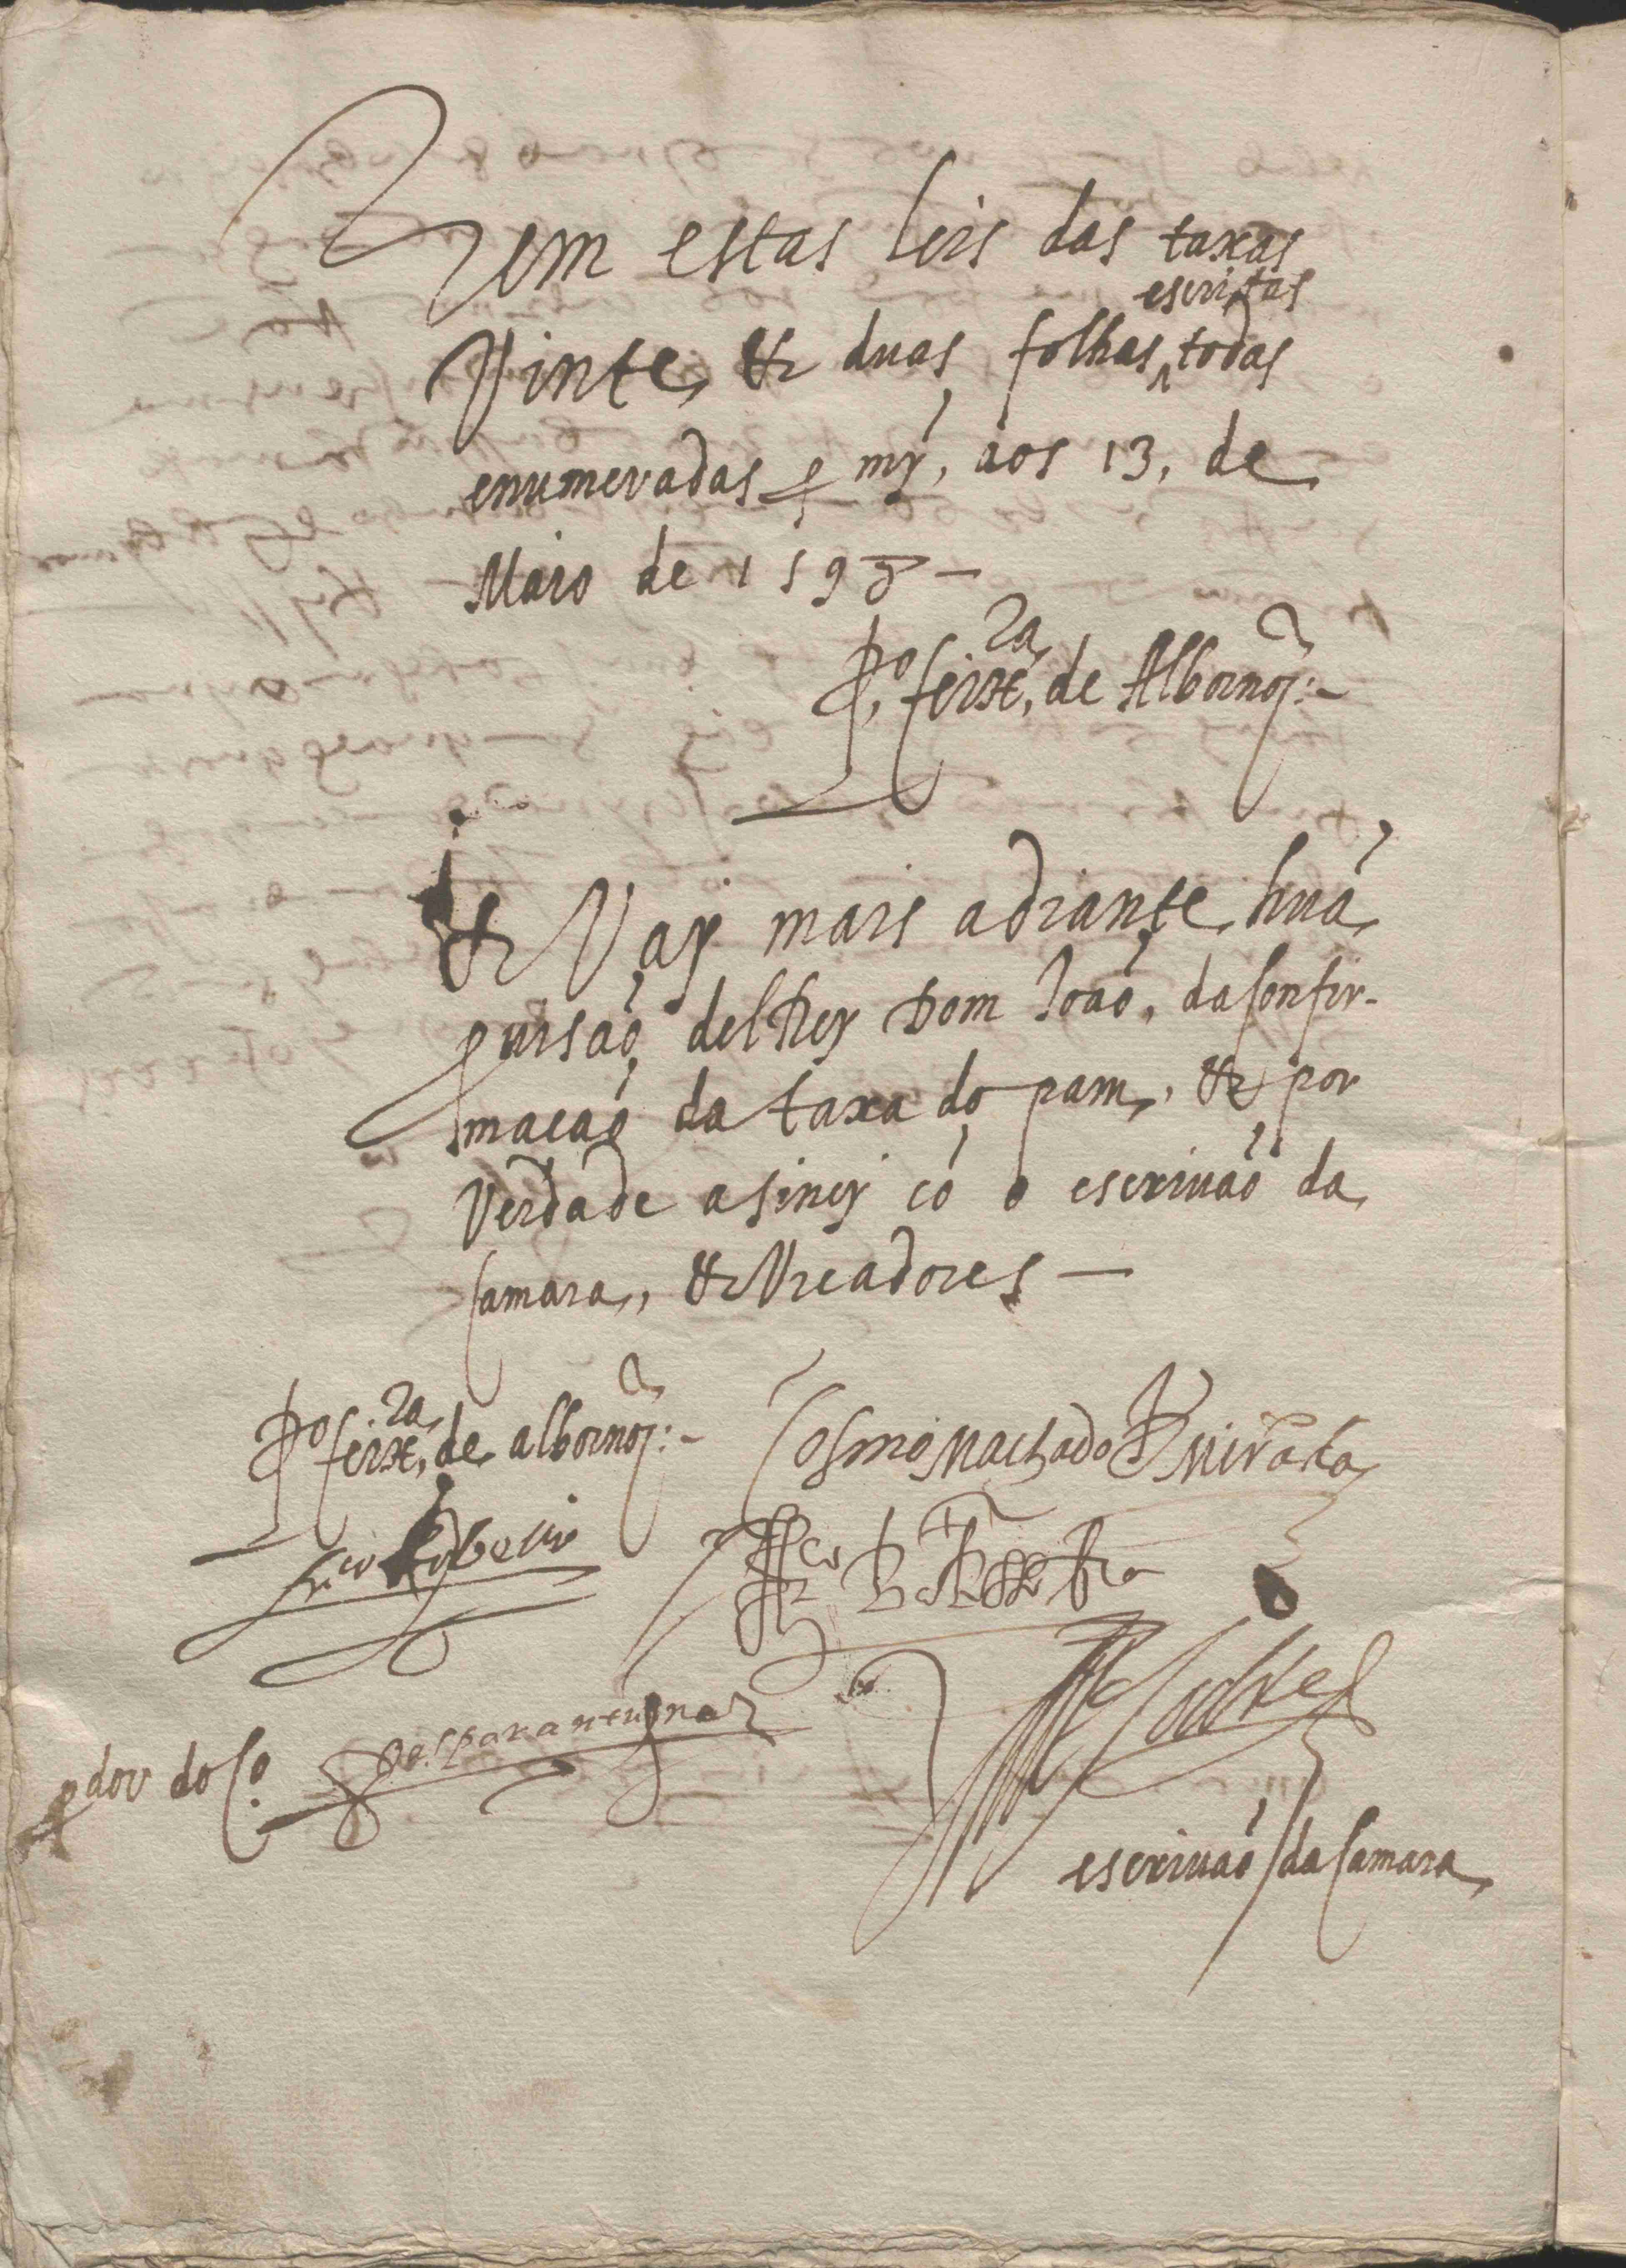 Tem estas leis das taxas
escritas
Vinte & duas folhas ^ todas
enumeradas p mỹ, aos 13, de
Maio de 1598 —
P.º ferrª, de Albornoz:-
& Vay mais adiante huã
puisaõ delRey Dom Joaõ, da Confir-
macaõ da taxa do pam, & por
Verdade asiney cõ o escriuaõ da
Camara, & Vreadores —
P.º ferrª, de albornoz:-
Cosmo Machado de Miranda
pdor do Cº
escriuaõ da Camara